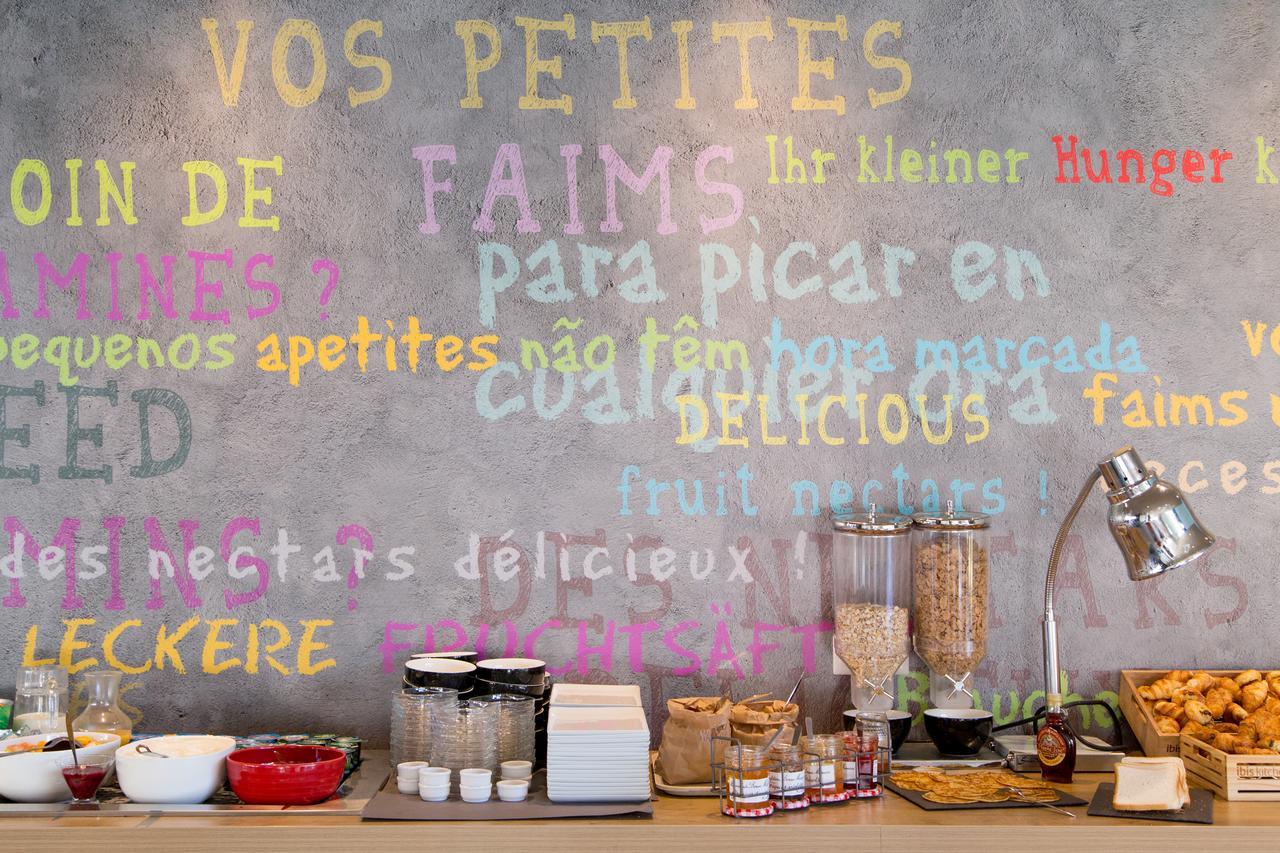 VOS PETITES
OIN DE
FAIMS
Ihr kleiner Hunger k
AMINES ?
para picar en
pequenos apetites não têm hora marcada
vo
cualquier ora
EED
DELICIOUS
faims
eces
fruit nectars !
MINS ?
des nectars délicieux !
DES NECTARS
LECKERE
FRUCHTSÄFT
Brauche
ibis
ibis kitchen